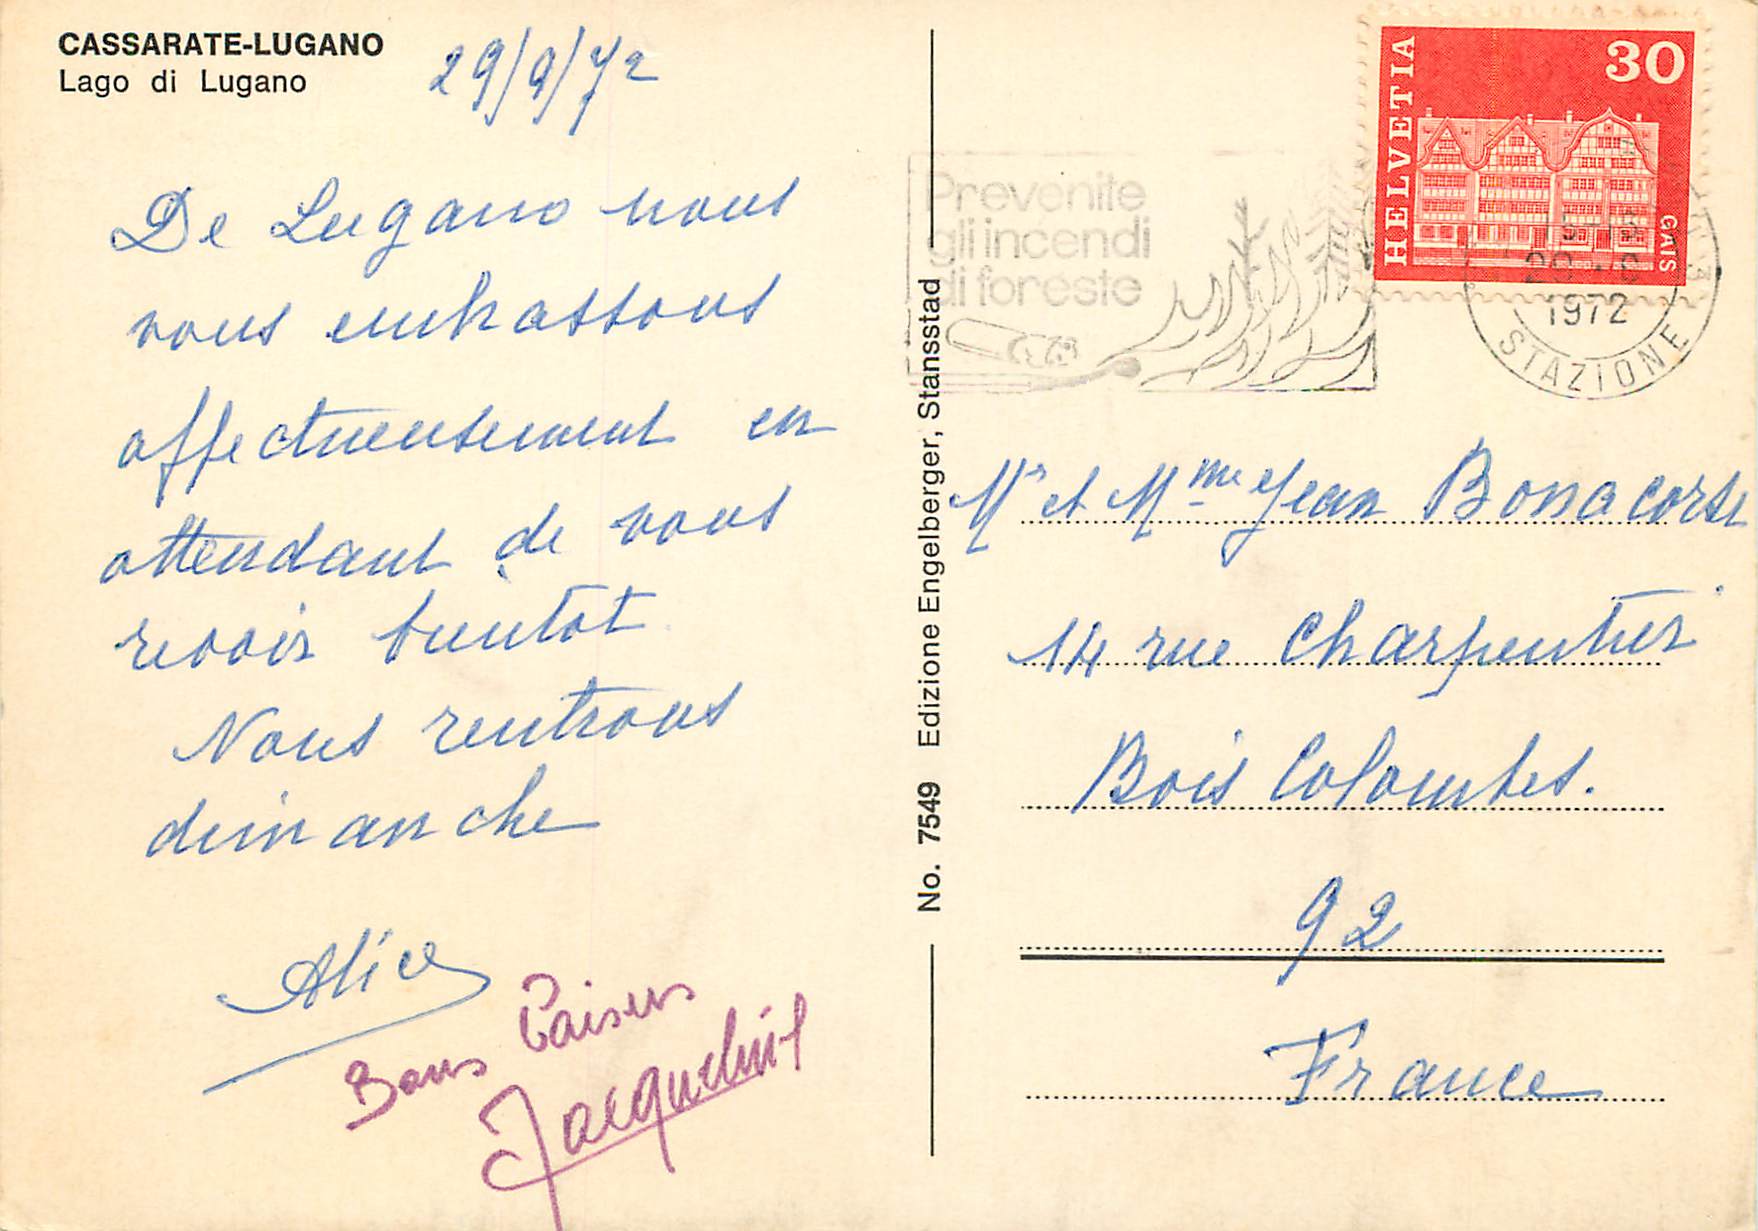 CASSARATE-LUGANO
Lago di Lugano
29/9/72
De Lugano nous
vous embrassons
affectueusement en
attendant de vous
revoir bientot
Nous rentrons
dimanche
Alice
Bons Baisers
Jacqueline
No. 7549 Edizione Engelberger, Stansstad
Prevenite
gli incendi
di foreste
HELVETIA
30
GAIS
1972
STAZIONE
Mr et Mme Jean Bonacorsi
14 rue Charpentier
Bois Colombes.
92
France